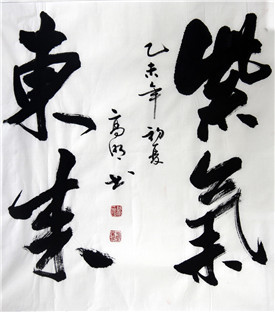 紫氣
東来
乙未年初夏
高明书